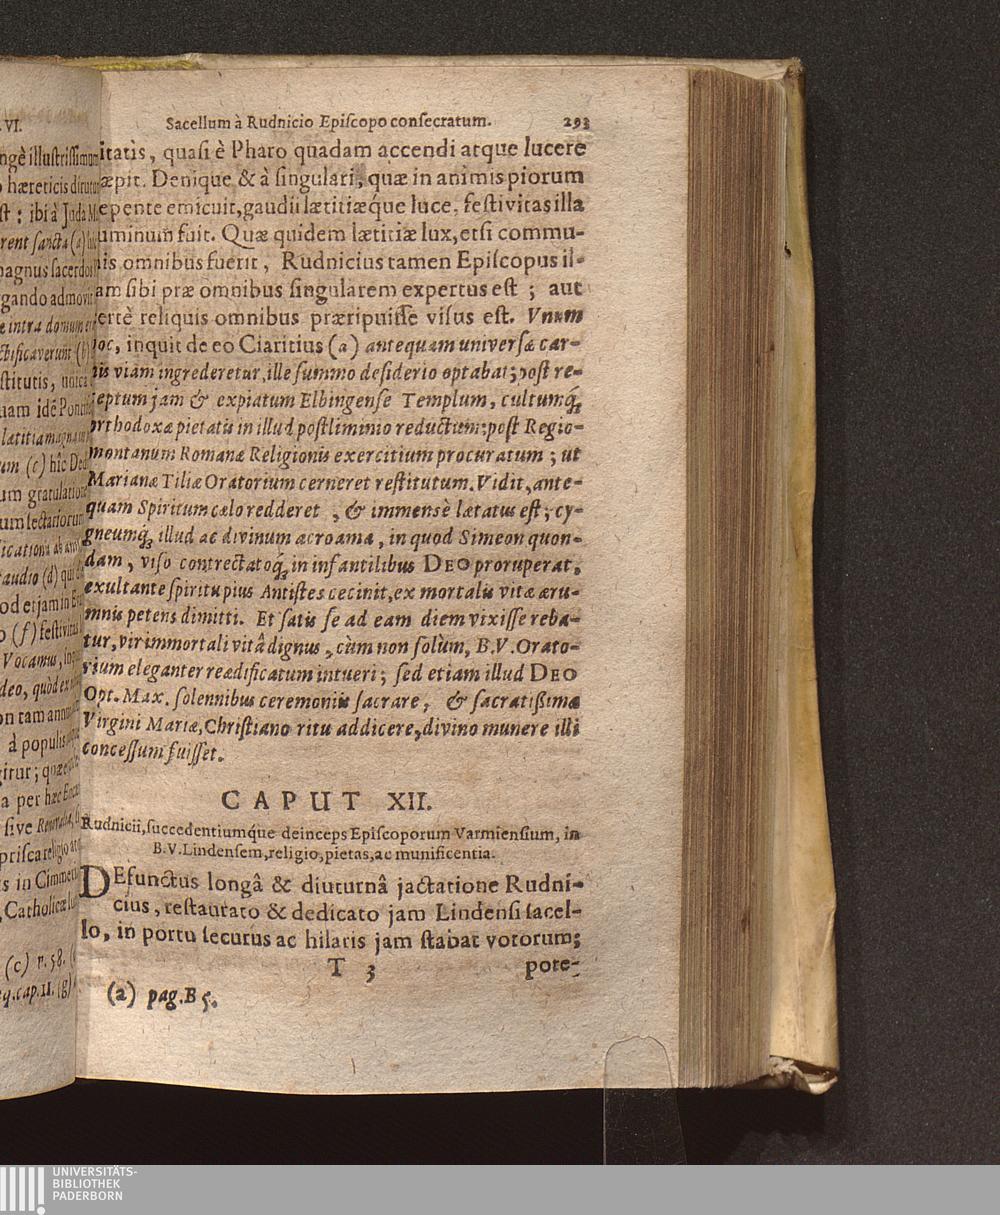 .VI.
ngè illustrissimum
hæreticis dirutum
st: ibi à Juda
rent sancta (a)
magnus sacerdos
gando admovit
intra domum
ctificaverunt (b)
stitutis,
uam idē
lætitia magna
um (c) hîc
um gratulatione
um lectariorum
audio (d) qui
od etjam in
(f) festivitas
Vocamus,
deo, quòd ex
on tam
à populis
gitur;
a per hæc
sive
prisca religio
s in
, Catholicæ
(c) v. 58.
q. cap. 11. (g)
Sacellum à Rudnicio Episcopo consecratum. 293
itatis, quasi è Pharo quadam accendi atque lucere
æpit. Denique & à singulari, quæ in animis piorum
epente emicuit, gaudii lætitiæque luce, festivitas illa
uminum fuit. Quæ quidem lætitiæ lux, etsi commu-
nis omnibus fuerit, Rudnicius tamen Episcopus il-
am sibi præ omnibus singularem expertus est; aut
certè reliquis omnibus præripuisse visus est. Vnum
hoc, inquit de eo Ciaritius (a) antequam universæ car-
nis viam ingrederetur, ille summo desiderio optabat; post re-
ceptum jam & expiatum Elbingense Templum, cultumq́;
orthodoxæ pietatis in illud postliminio reductum: post Regio-
montanum Romanæ Religionis exercitium procuratum; ut
Marianæ Tiliæ Oratorium cerneret restitutum. Vidit, ante-
quam Spiritum cælo redderet, & immensè lætatus est; cy-
gneumq́; illud ac divinum acroama, in quod Simeon quon-
dam, viso contrectatoq́; in infantilibus DEO proruperat,
exultante spiritu pius Antistes cecinit, ex mortalis vitæ æru-
mnis petens dimitti. Et satis se ad eam diem vixisse reba-
tur, vir immortali vitâ dignus, cùm non solùm, B. V. Orato-
rium eleganter reædificatum intueri; sed etiam illud DEO
Opt. Max. solennibus ceremoniis sacrare, & sacratissimæ
Virgini Mariæ, Christiano ritu addicere, divino munere illi
concessum fuisset.
CAPUT XII.
Rudnicii, succedentiumque deinceps Episcoporum Varmiensium, in
B. V. Lindensem, religio, pietas, ac munificentia.
DEfunctus longâ & diuturnâ jactatione Rudni-
cius, restaurato & dedicato jam Lindensi sacel-
lo, in portu securus ac hilaris jam stabat votorum;
T 3 pote-
(a) pag. B 5.
UNIVERSITÄTS-
BIBLIOTHEK
PADERBORN